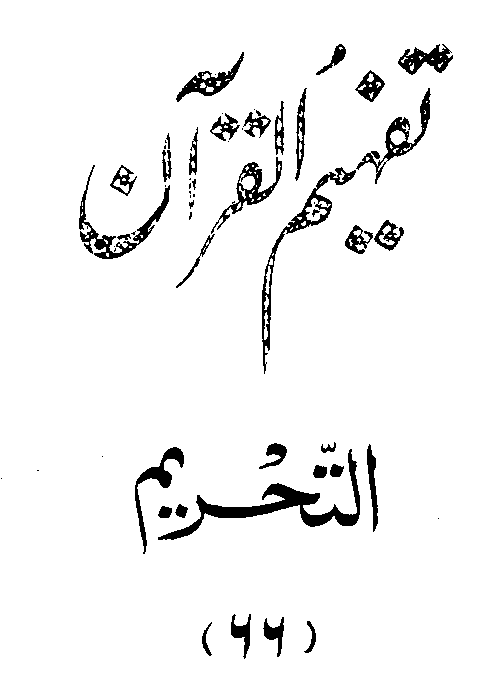 تفہیمُ القرآن
التَّحْرِیم
(۶۶)